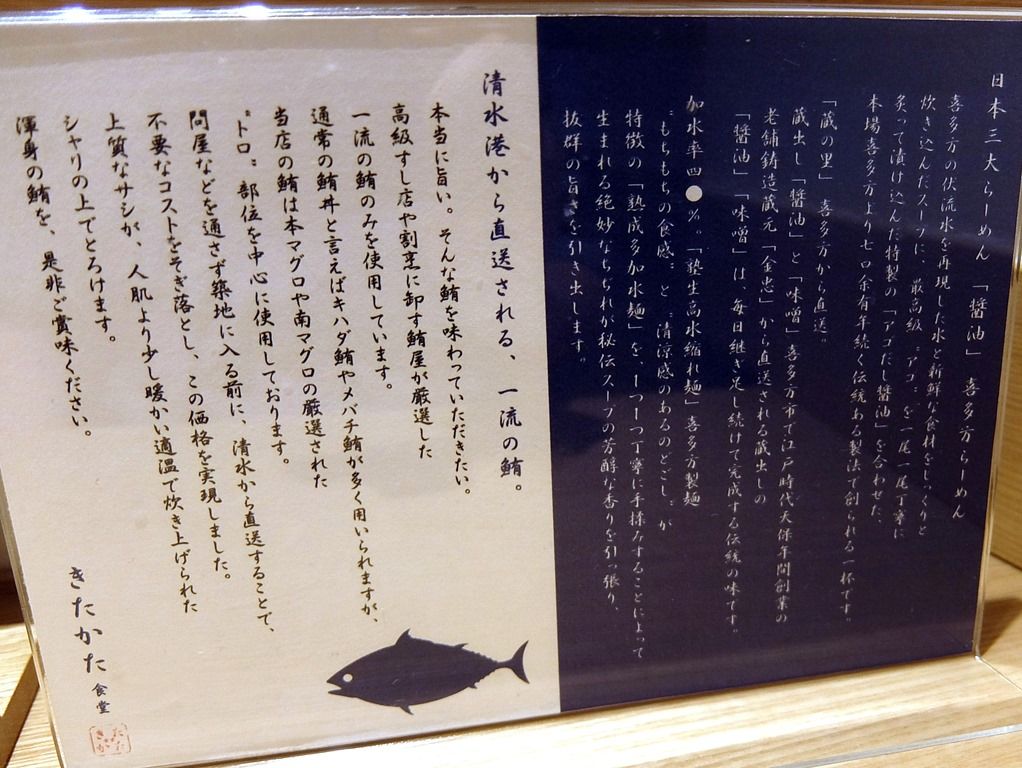 日本三大らーめん 「醤油」 喜多方らーめん
喜多方の伏流水を再現した水と新鮮な食材をじっくりと
炊き込んだスープに、最高級〝アゴ〟を一尾一尾丁寧に
炙って漬け込んだ特製の「アゴだし醤油」を合わせた、
本場喜多方より七〇余有年続く伝統ある製法で創られる一杯です。
「蔵の里」 喜多方から直送〟
蔵出し「醤油」と「味噌」喜多方市で江戸時代天保年間創業の
老舗鋳造蔵元「金忠」から直送される蔵出しの
「醤油」「味噌」は、毎日継ぎ足し続けて完成する伝統の味です。
加水率四●%。「塾生高水縮れ麺」喜多方製麺
〝もちもちの食感〟と〝清涼感のあるのどごし〟が
特徴の「熟成多加水麺」を、1つ1つ丁寧に手揉みすることによって
生まれる絶妙なちぢれが秘伝スープの芳醇な香りを引っ張り、
抜群の旨さを引き出します。
清水港から直送される、一流の鮪。
本当に旨い。そんな鮪を味わっていただきたい。
高級すし店や割烹に卸す鮪屋が厳選した
一流の鮪のみを使用しています。
通常の鮪丼と言えばキハダ鮪やメバチ鮪が多く用いられますが、
当店の鮪は本マグロや南マグロの厳選された
〝トロ〟部位を中心に使用しております。
問屋などを通さず築地に入る前に、清水から直送することで、
不要なコストをそぎ落とし、この価格を実現しました。
上質なサシが、人肌より少し暖かい適温で炊き上げられた
シャリの上でとろけます。
渾身の鮪を、是非ご賞味ください。
きたかた食堂